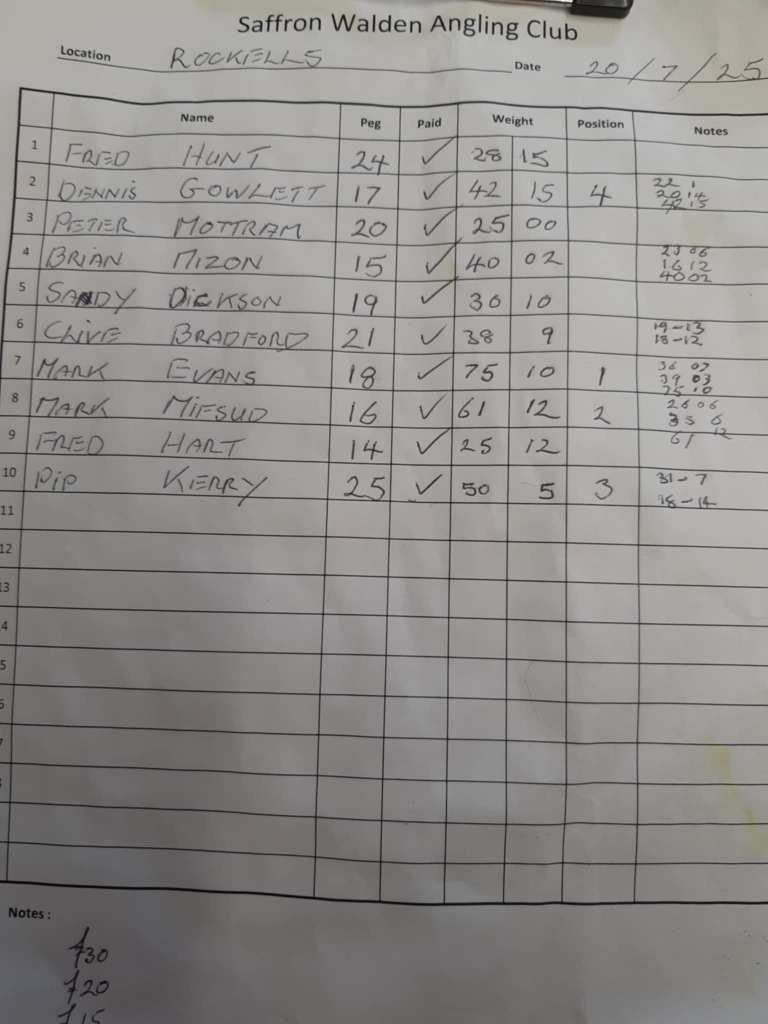 Saffron Walden Angling Club
Location ROCKELLS Date 20/7/25
Name Peg Paid Weight Position Notes
1 FRED HUNT 24 ✓ 28 15
2 DENNIS GOWLETT 17 ✓ 42 15 4 22 1
20 14
42 15
3 PETER MOTTRAM 20 ✓ 25 00
4 BRIAN NIZON 15 ✓ 40 02 23 06
16 12
40 02
5 SANDY DICKSON 19 ✓ 30 10
6 CLIVE BRADFORD 21 ✓ 38 9 19-13
18-12
7 MARK EVANS 18 ✓ 75 10 1 36 07
39 03
75 10
8 MARK MIFSUD 16 ✓ 61 12 2 26 06
35 6
61 12
9 FRED HART 14 ✓ 25 12
10 PIP KERRY 25 ✓ 50 5 3 31-7
18-14
11
12
13
4
5
Notes :
£30
£20
£15